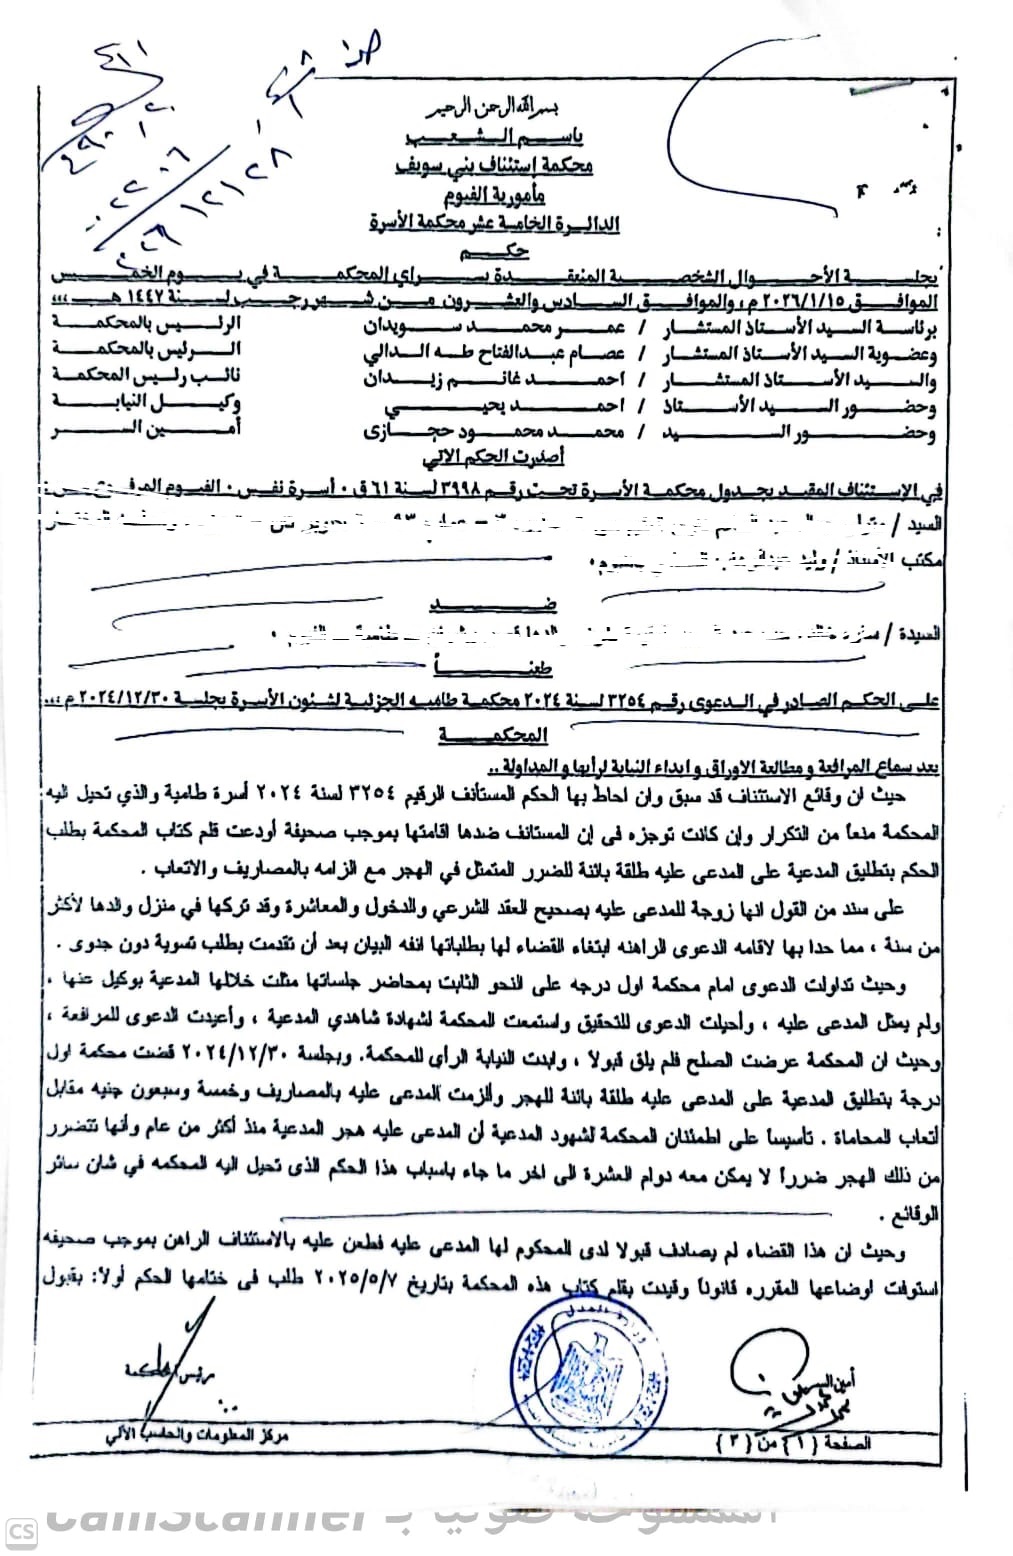 بسم الله الرحمن الرحيم
باسم الشعب
محكمة إستئناف بني سويف
مأمورية الفيوم
الدائرة الخامسة عشر محكمة الأسرة
حكم
بجلسة الأحوال الشخصية المنعقدة بسراي المحكمة في يوم الخميس
الموافق ٢٠٢٦/١/١٥ م، والموافق السادس والعشرون من شهر رجب لسنة ١٤٤٧ هـ ،،،
برئاسة السيد الأستاذ المستشار / عمر محمد سويدان الرئيس بالمحكمة
وعضوية السيد الأستاذ المستشار / عصام عبدالفتاح طه الدالي الرئيس بالمحكمة
والسيد الأستاذ المستشار / احمد غانم زيدان نائب رئيس المحكمة
وحضور السيد الأستاذ / احمد يحيي وكيل النيابة
وحضور السيد / محمد محمود حجازى أمين السر
أصدرت الحكم الاتي
في الإستئناف المقيد بجدول محكمة الأسرة تحت رقم ٣٩٩٨ لسنة ٦١ ق ٠ أسرة نفس ٠ الفيوم المرفوع من :
السيد /
مكتب الأستاذ / وليد
ضد
السيدة /
طعناً
على الحكم الصادر في الدعوى رقم ٣٢٥٤ لسنة ٢٠٢٤ محكمة طاميه الجزئية لشئون الأسرة بجلسة ٢٠٢٤/١٢/٣٠ م ،،،
المحكمة
بعد سماع المرافعة و مطالعة الاوراق و ابداء النيابة لرأيها و المداولة ..
حيث ان وقائع الاستئناف قد سبق وان احاط بها الحكم المستأنف الرقيم ٣٢٥٤ لسنة ٢٠٢٤ أسرة طامية والذي تحيل اليه
المحكمة منعاً من التكرار وإن كانت توجزه فى إن المستانف ضدها اقامتها بموجب صحيفة أودعت قلم كتاب المحكمة بطلب
الحكم بتطليق المدعية على المدعى عليه طلقة بائنة للضرر المتمثل في الهجر مع الزامه بالمصاريف والاتعاب .
على سند من القول انها زوجة للمدعى عليه بصحيح العقد الشرعي والدخول والمعاشرة وقد تركها في منزل والدها لأكثر
من سنة ، مما حدا بها لاقامه الدعوى الراهنه ابتغاء القضاء لها بطلباتها انفه البيان بعد أن تقدمت بطلب تسوية دون جدوى .
وحيث تداولت الدعوى امام محكمة اول درجه على النحو الثابت بمحاضر جلساتها مثلت خلالها المدعية بوكيل عنها ،
ولم يمثل المدعى عليه ، وأحيلت الدعوى للتحقيق واستمعت المحكمة لشهادة شاهدي المدعية ، وأعيدت الدعوى للمرافعة ،
وحيث ان المحكمة عرضت الصلح فلم يلق قبولا ، وابدت النيابة الرأى للمحكمة. وبجلسة ٢٠٢٤/١٢/٣٠ قضت محكمة اول
درجة بتطليق المدعية على المدعى عليه طلقة بائنة للهجر وألزمت المدعى عليه بالمصاريف وخمسة وسبعون جنيه مقابل
أتعاب للمحاماة . تأسيساً على اطمئنان المحكمة لشهود المدعية أن المدعى عليه هجر المدعية منذ أكثر من عام وأنها تتضرر
من ذلك الهجر ضرراً لا يمكن معه دوام العشرة الى اخر ما جاء باسباب هذا الحكم الذى تحيل اليه المحكمه في شان سائر
الوقائع .
وحيث ان هذا القضاء لم يصادف قبولا لدى المحكوم لها المدعى عليه فطعن عليه بالاستئناف الراهن بموجب صحيفه
استوفت اوضاعها المقرره قانوناً وقيدت بقلم كتاب هذه المحكمة بتاريخ ٢٠٢٥/٥/٧ طلب فى ختامها الحكم أولا: بقبول
أمين السر
رئيس المحكمة
وزارة العدل
الصفحة (١) من (٣)
مركز المعلومات والحاسب الآلي
الممسوحة ضوئيا بـ CamScanner
CS